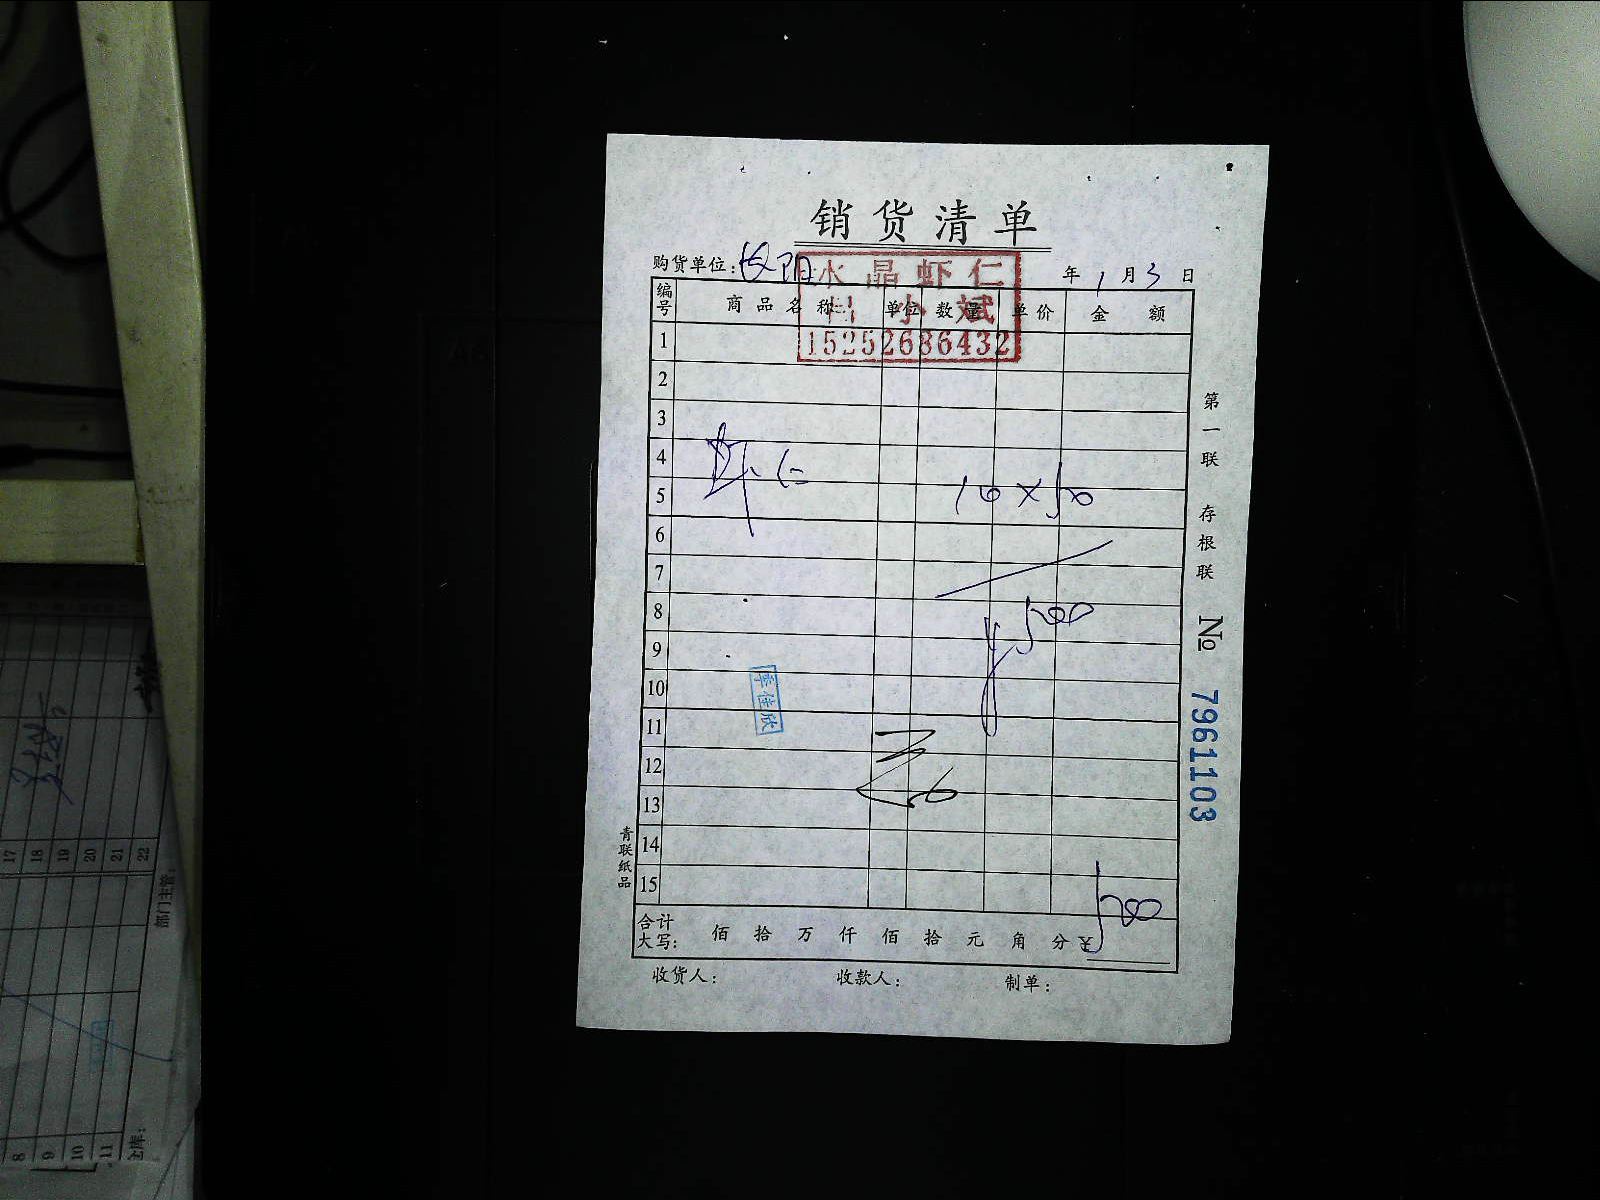 销货清单
购货单位: 年 1 月 3 日
水晶虾仁
小斌
15252686432
编号 商品名称 单位 数量 单价 金额
1
2
3
4
5
虾仁 10×50
6
7
8
500
9
10
11
12
13
14
15
季佳欣
合计
大写: 佰 拾 万 仟 佰 拾 元 角 分 ¥ 500
收货人: 收款人: 制单:
第一联 存根联
№ 7961103
青联纸品
17
18
19
20
21
22
部门主管:
8
9
10
11
仓库: